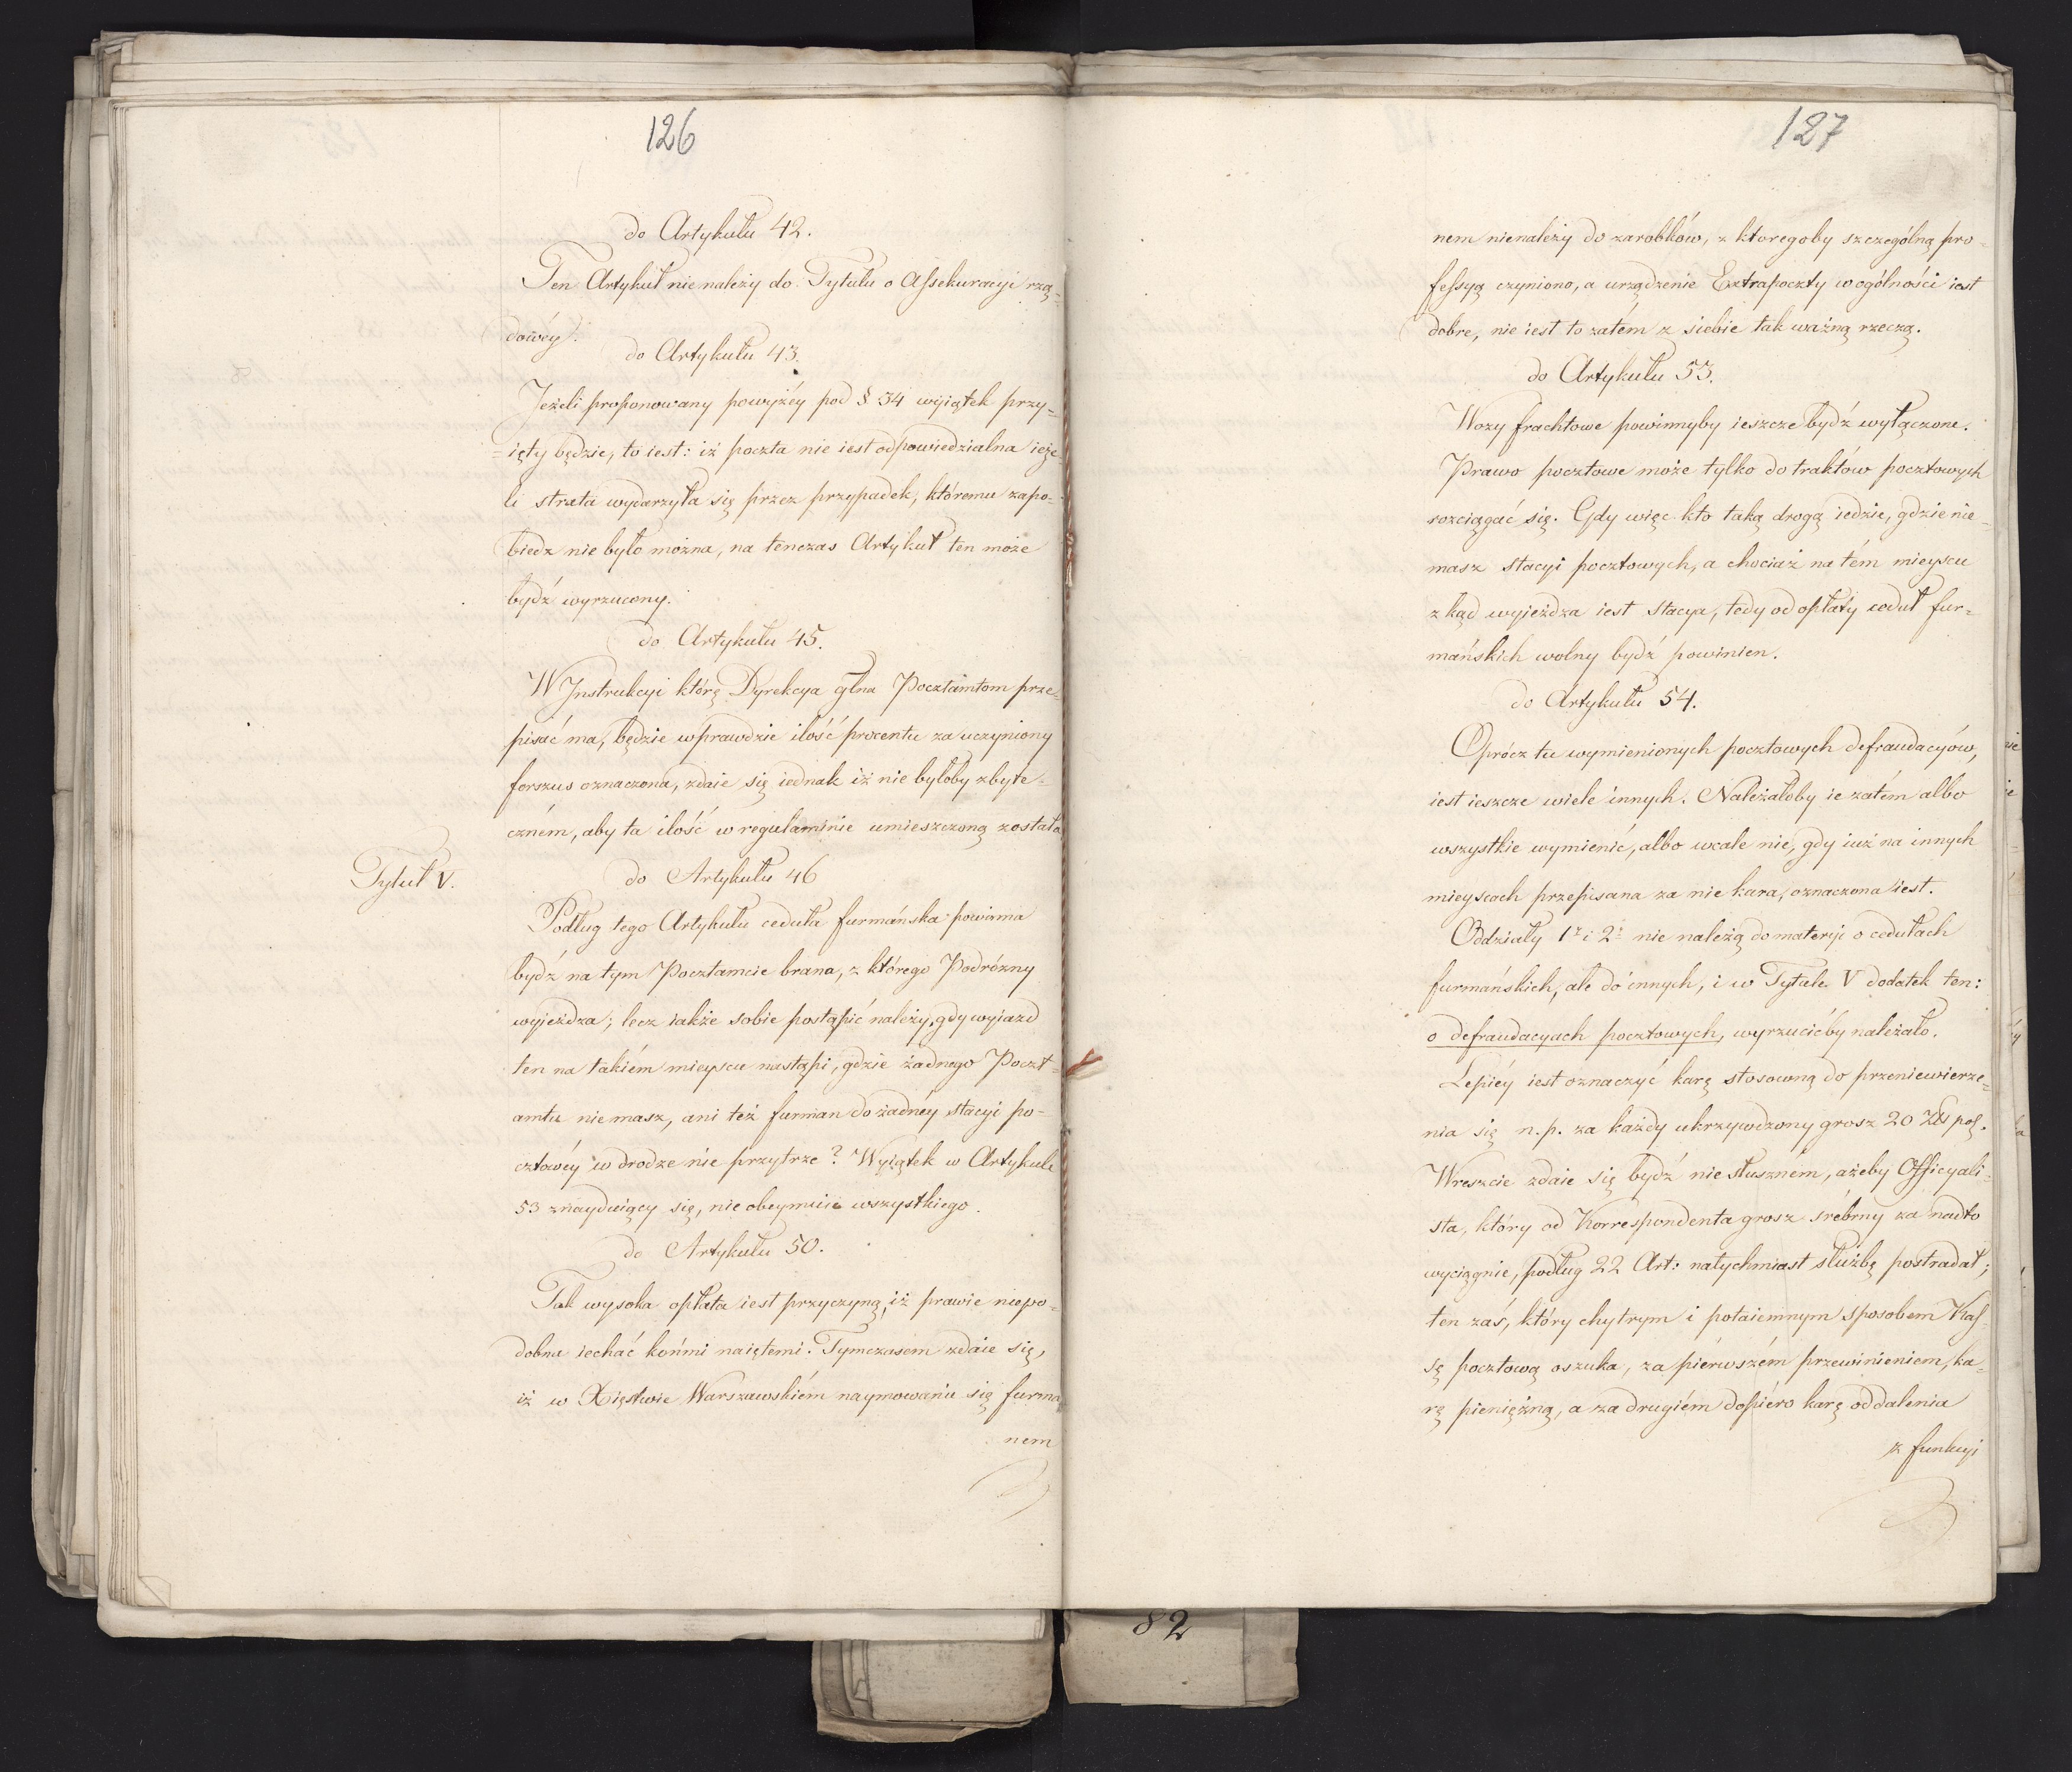 126
do Artykułu 42.
Ten Artykuł nie należy do Tytułu o Assekuracyi rzą=
dowéy.
do Artykułu 43.
Jeżeli proponowany powyżéy pod § 34 wyiątek przy=
=ięty będzie, to iest: iż poczta nie iest odpowiedzialna ieże-
li strata wydarzyła się przez przypadek, któremu zapo-
biedz nie było można, na tenczas Artykuł ten może
bydź wyrzucony.
do Artykułu 45.
W Instrukcyi którę Dyrekcya glna Pocztamtom prze-
pisać ma, będzie wprawdzie ilość procentu za uczyniony
forszus oznaczona, zdaie się iednak iż nie byłoby zbyte-
czném, aby ta ilość w regulaminie umieszczoną została
Tytuł V.
do Artykułu 46
Podług tego Artykułu ceduła furmańska powinna
bydź na tym Pocztamcie brana, z którego Podróżny
wyieżdza; lecz iakże sobie postąpić należy, gdy wyiazd
ten na takiém mieyscu nastąpi, gdzie żadnego Poczt=
amtu nie masz, ani też furman do żadnéy stacyi po-
cztowéy w drodze nie przytrze? Wyiątek w Artykule
53 znayduiący się, nie obeymuie wszystkiego.
do Artykułu 50.
Tak wysoka opłata iest przyczyną, iż prawie niepo-
dobna iechać końmi naiętemi. Tymczasem zdaie się,
iż w Xięstwie Warszawskiém naymowaniu się furma
nem
127
nem nienależy do zarobków, z ktoregoby szczególną pro-
fessyą czyniono, a urządzenie Extrapoczty w ogólności iest
dobre, nie iest to zatém z siebie tak ważną rzeczą.
do Artykułu 53.
Wozy frachtowe powinnyby ieszcze bydź wyłączone.
Prawo pocztowe może tylko do traktów pocztowych
rozciągać się. Gdy więc kto taką drogą iedzie, gdzie nie-
masz stacyi pocztowych, a chociaż na tém mieyscu
zkąd wyieżdza iest stacya, tedy od opłaty ceduł fur-
mańskich wolny bydź powinien.
do Artykułu 54.
Oprócz tu wymienionych pocztowych defraudacyów,
iest ieszcze wiele innych. Należałoby ie zatém albo
wszystkie wymienić, albo wcale nie, gdy iuż na innych
mieyscach przepisana za nie kara, oznaczona iest.
Oddziały 1. i 2. nie należą do materyi o cedułach
furmańskich, ale do innych, i w Tytule V dodatek ten:
o defraudacyach pocztowych, wyrzucićby należało.
Lepiéy iest oznaczyć karę stosowną do przeniewierze=
nia się n.p. za każdy ukrzywdzony grosz 20 Zł pol.
Wreszcie zdaie się bydź niesłuszném, ażeby Officyali-
sta, który od Korrespondenta grosz śrébrny za nadto
wyciągnie, podług 22 Art: natychmiast służbę postradał;
ten zaś, który chytrym i potaiemnym sposobem Kas-
sę pocztową oszuka, za pierwszém przewinieniem, ka-
rę pieniężną, a za drugiém dopiéro karę oddalenia
z funkcyi
82